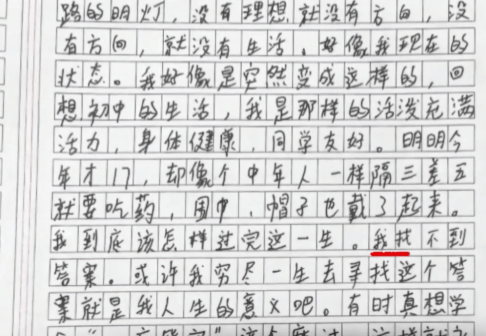 路的明灯，没有理想就没有方向，没
有方向，就没有生活。好像我现在的
状态。我好像是突然变成这样的，回
想初中的生活，我是那样的活泼充满
活力，身体健康，同学友好。明明今
年才17，却像个中年人一样隔三差五
就要吃药，围巾，帽子也戴了起来。
我到底该怎样过完这一生。我找不到
答案。或许我穷尽一生去寻找这个答
案就是我人生的意义吧。有时真想学